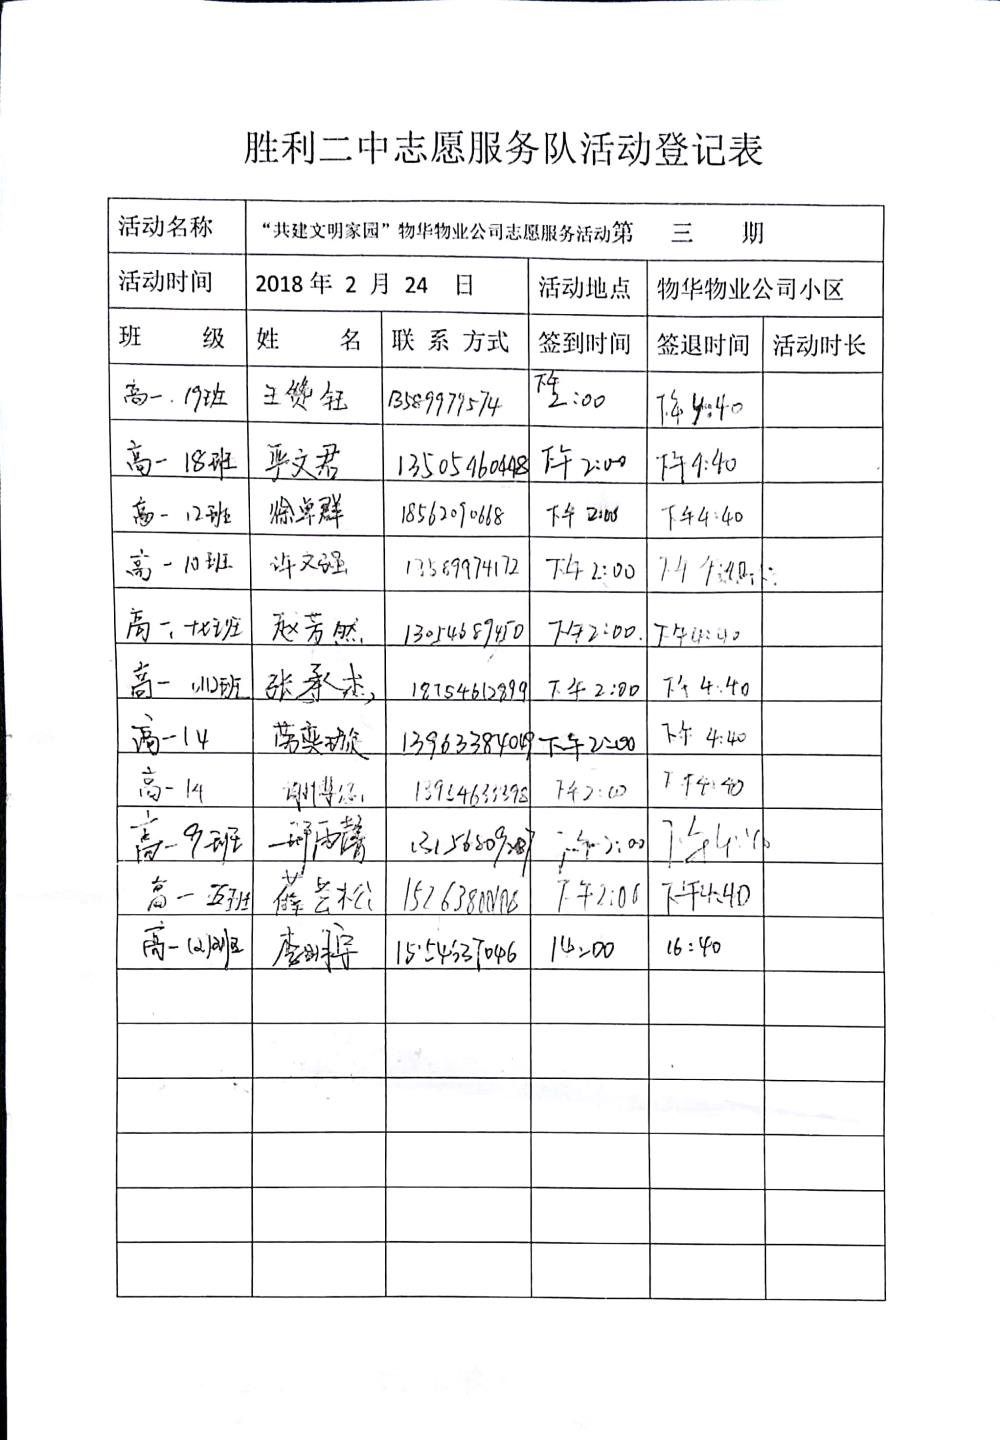 胜利二中志愿服务队活动登记表
活动名称 “共建文明家园”物华物业公司志愿服务活动第 三 期
活动时间 2018 年 2 月 24 日 活动地点 物华物业公司小区
班 级 姓 名 联 系 方式 签到时间 签退时间 活动时长
高一.19班 王赞钰 13589979574 下午2:00 下午4:40
高一 18班 严文君 13505460448 下午2:00 下午4:40
高一 12班 徐卓群 18562090668 下午2:00 下午4:40
高一 10班 许文强 13589974172 下午2:00
高一、十七班 赵芳然 13054689450 下午2:00. 下午4:40
高一 班 张承杰 18754612899 下午2:00 下午4:40
高一14 13963384049 下午2:00 下午4:40
高一14 下午2:00 下午4:40
高一9班 雨馨 2:00 下午
高一五班 薛芸松 下午2:00 下午4:40
高一(2)班 李 15554637046 14:00 16:40